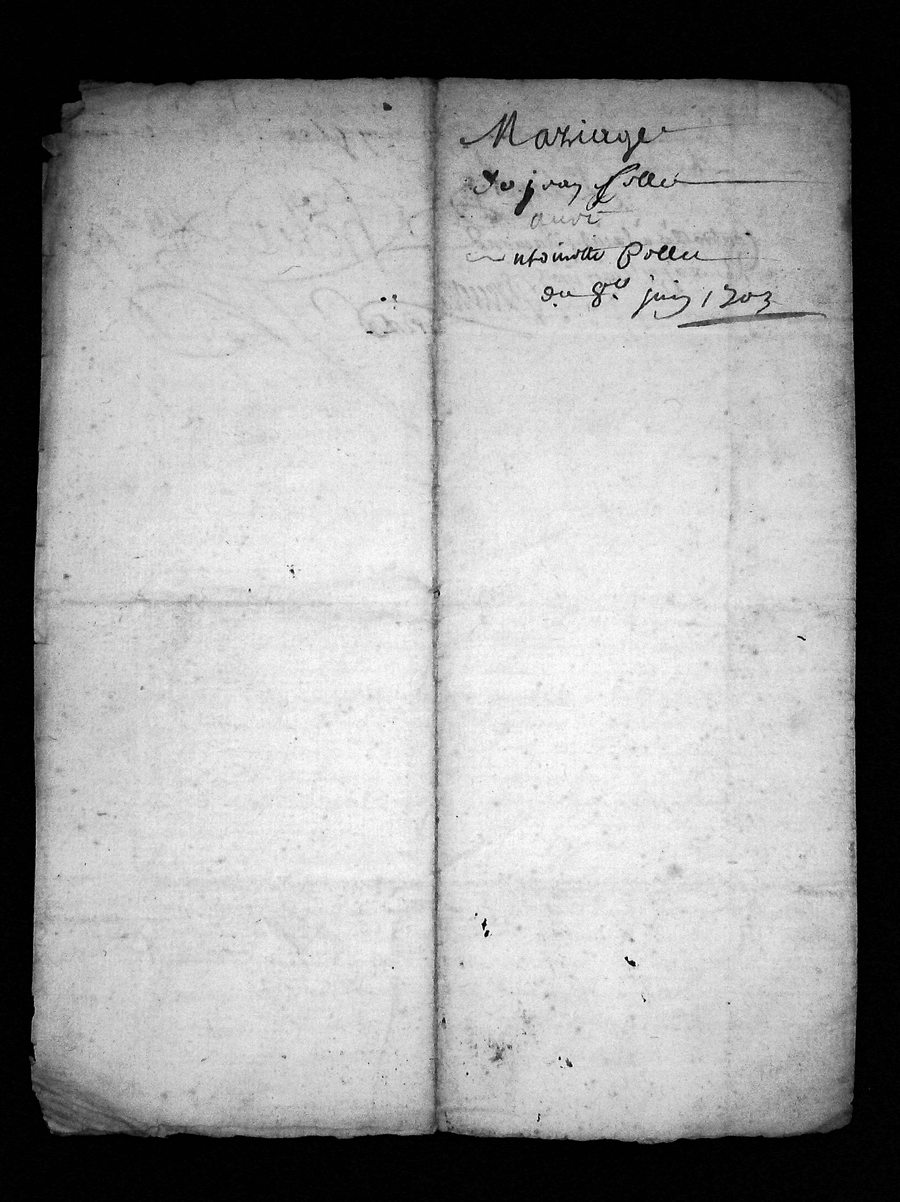 Mariage
De jean Collet
avec
Antoinette Collet
du 8e juin 1703